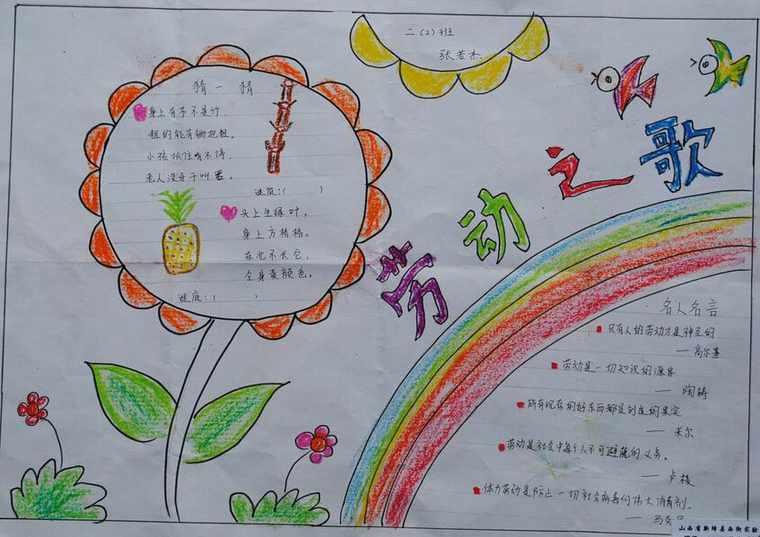 二（2）班
张若杰
劳动之歌
猜一猜
身上有节不是竹，
粗的能有锄把粗，
小孩抓住啃不停，
老人没牙干叫苦。
谜底：（ ）
头上生绿叶，
身上方格格，
在地不长它，
全身黄颜色。
谜底：（ ）
名人名言
只有人的劳动才是神圣的
——高尔基
劳动是一切知识的源泉
——陶铸
所有现存的好东西都是创造的果实
——米尔
劳动是社会中每个人不可避免的义务。
——卢梭
体力劳动是防止一切社会病毒的伟大消毒剂。
——马克思
山西省新绛县西街实验